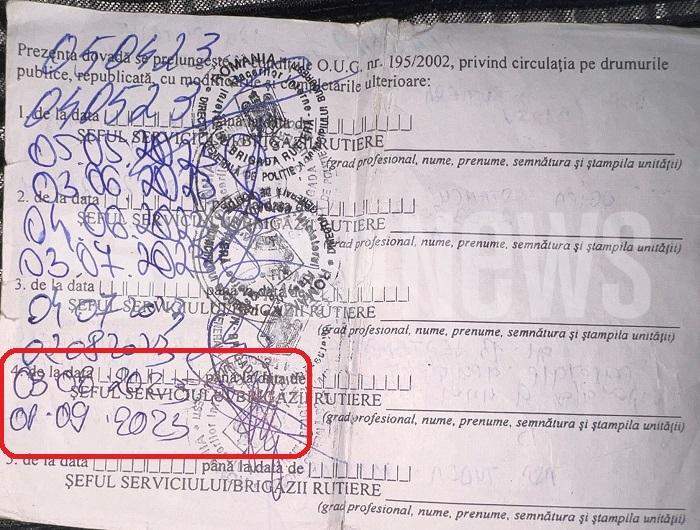 05.04.23
Prezenta dovadă se prelungește în condițiile O.U.G. nr. 195/2002, privind circulația pe drumurile
publice, republicată, cu modificările și completările ulterioare:
04.05.23
1. de la data până la data de
ȘEFUL SERVICIULUI/BRIGĂZII RUTIERE
05.05.2023
(grad profesional, nume, prenume, semnătura și ștampila unității)
03.06.2023
2. de la data până la data de
04.06.2023
ȘEFUL SERVICIULUI/BRIGĂZII RUTIERE
(grad profesional, nume, prenume, semnătura și ștampila unității)
03.07.2023
3. de la data până la data de
04.07.2023
ȘEFUL SERVICIULUI/BRIGĂZII RUTIERE
(grad profesional, nume, prenume, semnătura și ștampila unității)
02082023
4. de la data până la data de
03 08 2023
ȘEFUL SERVICIULUI/BRIGĂZII RUTIERE
01.09.2023
(grad profesional, nume, prenume, semnătura și ștampila unității)
5. de la data până la data de
ȘEFUL SERVICIULUI/BRIGĂZII RUTIERE
(grad profesional, nume, prenume, semnătura și ștampila unității)
ROMANIA
BRIGADA RUTIERĂ
NEWS